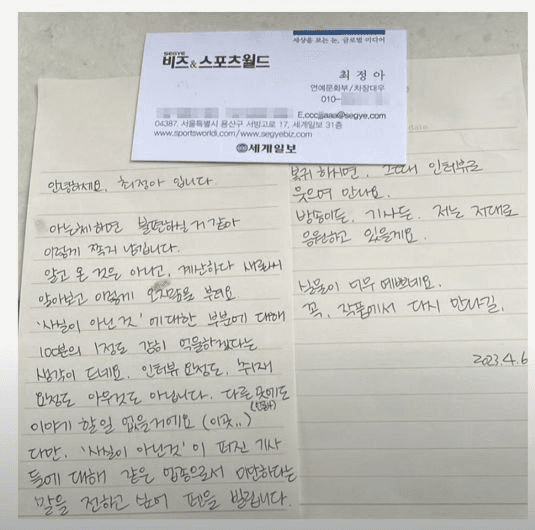 세상을 보는 눈, 글로벌 미디어
SEGYE
비즈&스포츠월드
최 정 아
연예문화부/차장대우
010-
E.cccjjaaa@segye.com
04387. 서울특별시 용산구 서빙고로 17, 세계일보 31층
www.sportsworldi.com/www.segyebiz.com
세계일보
안녕하세요, 최정아 입니다.
아는체 하면 불편하실 거 같아
이렇게 쪽지 남깁니다.
알고 온 것은 아니고, 계산하다 새로워서
알아보고 이렇게 오지랖을 부려요
'사실이 아닌 것' 에 대한 부분에 대해
100분의 1정도 감히 억울하겠다는
생각이 드네요. 인터뷰 요청도, 취재
요청도 아무것도 아닙니다. 다른 곳에도
이야기 할 일 없을거에요 (이곳..)
다만, '사실이 아닌것' 이 퍼진 기사
들에 대해 같은 업종으로서 미안하다는
말을 전하고 싶어 펜을 빌립니다.
복귀 하시면, 그때 인터뷰로
웃으며 만나요.
방송이든, 기사든. 저는 저대로
응원하고 있을게요.
실물이 너무 예쁘네요.
꼭, 작품에서 다시 만나길.
2023.4.6